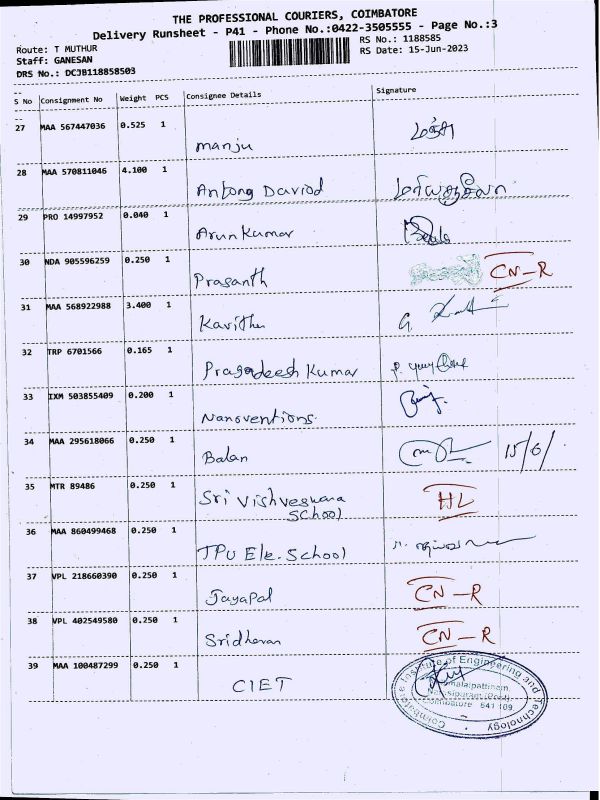 THE PROFESSIONAL COURIERS, COIMBATORE
Delivery Runsheet - P41 - Phone No.:0422-3505555 - Page No.:3
Route: T MUTHUR
RS No.: 1188585
Staff: GANESAN
RS Date: 15-Jun-2023
DRS No.: DCJB118858503
S No Consignment No Weight PCS Consignee Details Signature
27 MAA 567447036 0.525 1 manju
28 MAA 570811046 4.100 1 Antony Daviod
29 PRO 14997952 0.040 1 Arun Kumar
30 NDA 905596259 0.250 1 Prasanth CN-R
31 MAA 568922988 3.400 1 Kavitha
32 TRP 6701566 0.165 1 Pragadeesh Kumar
33 IXM 503855409 0.200 1 Nanoventions
34 MAA 295618066 0.250 1 Balan 15/6/
35 MTR 89486 0.250 1 Sri Vishveshwara HL
School
36 MAA 860499468 0.250 1 JPU Ele. School
37 VPL 218660390 0.250 1 Jayapal CN-R
38 VPL 402549580 0.250 1 Sridharan CN-R
39 MAA 100487299 0.250 1 CIET
Coimbatore Institute of Engineering and Technology
Coimbatore 641 109